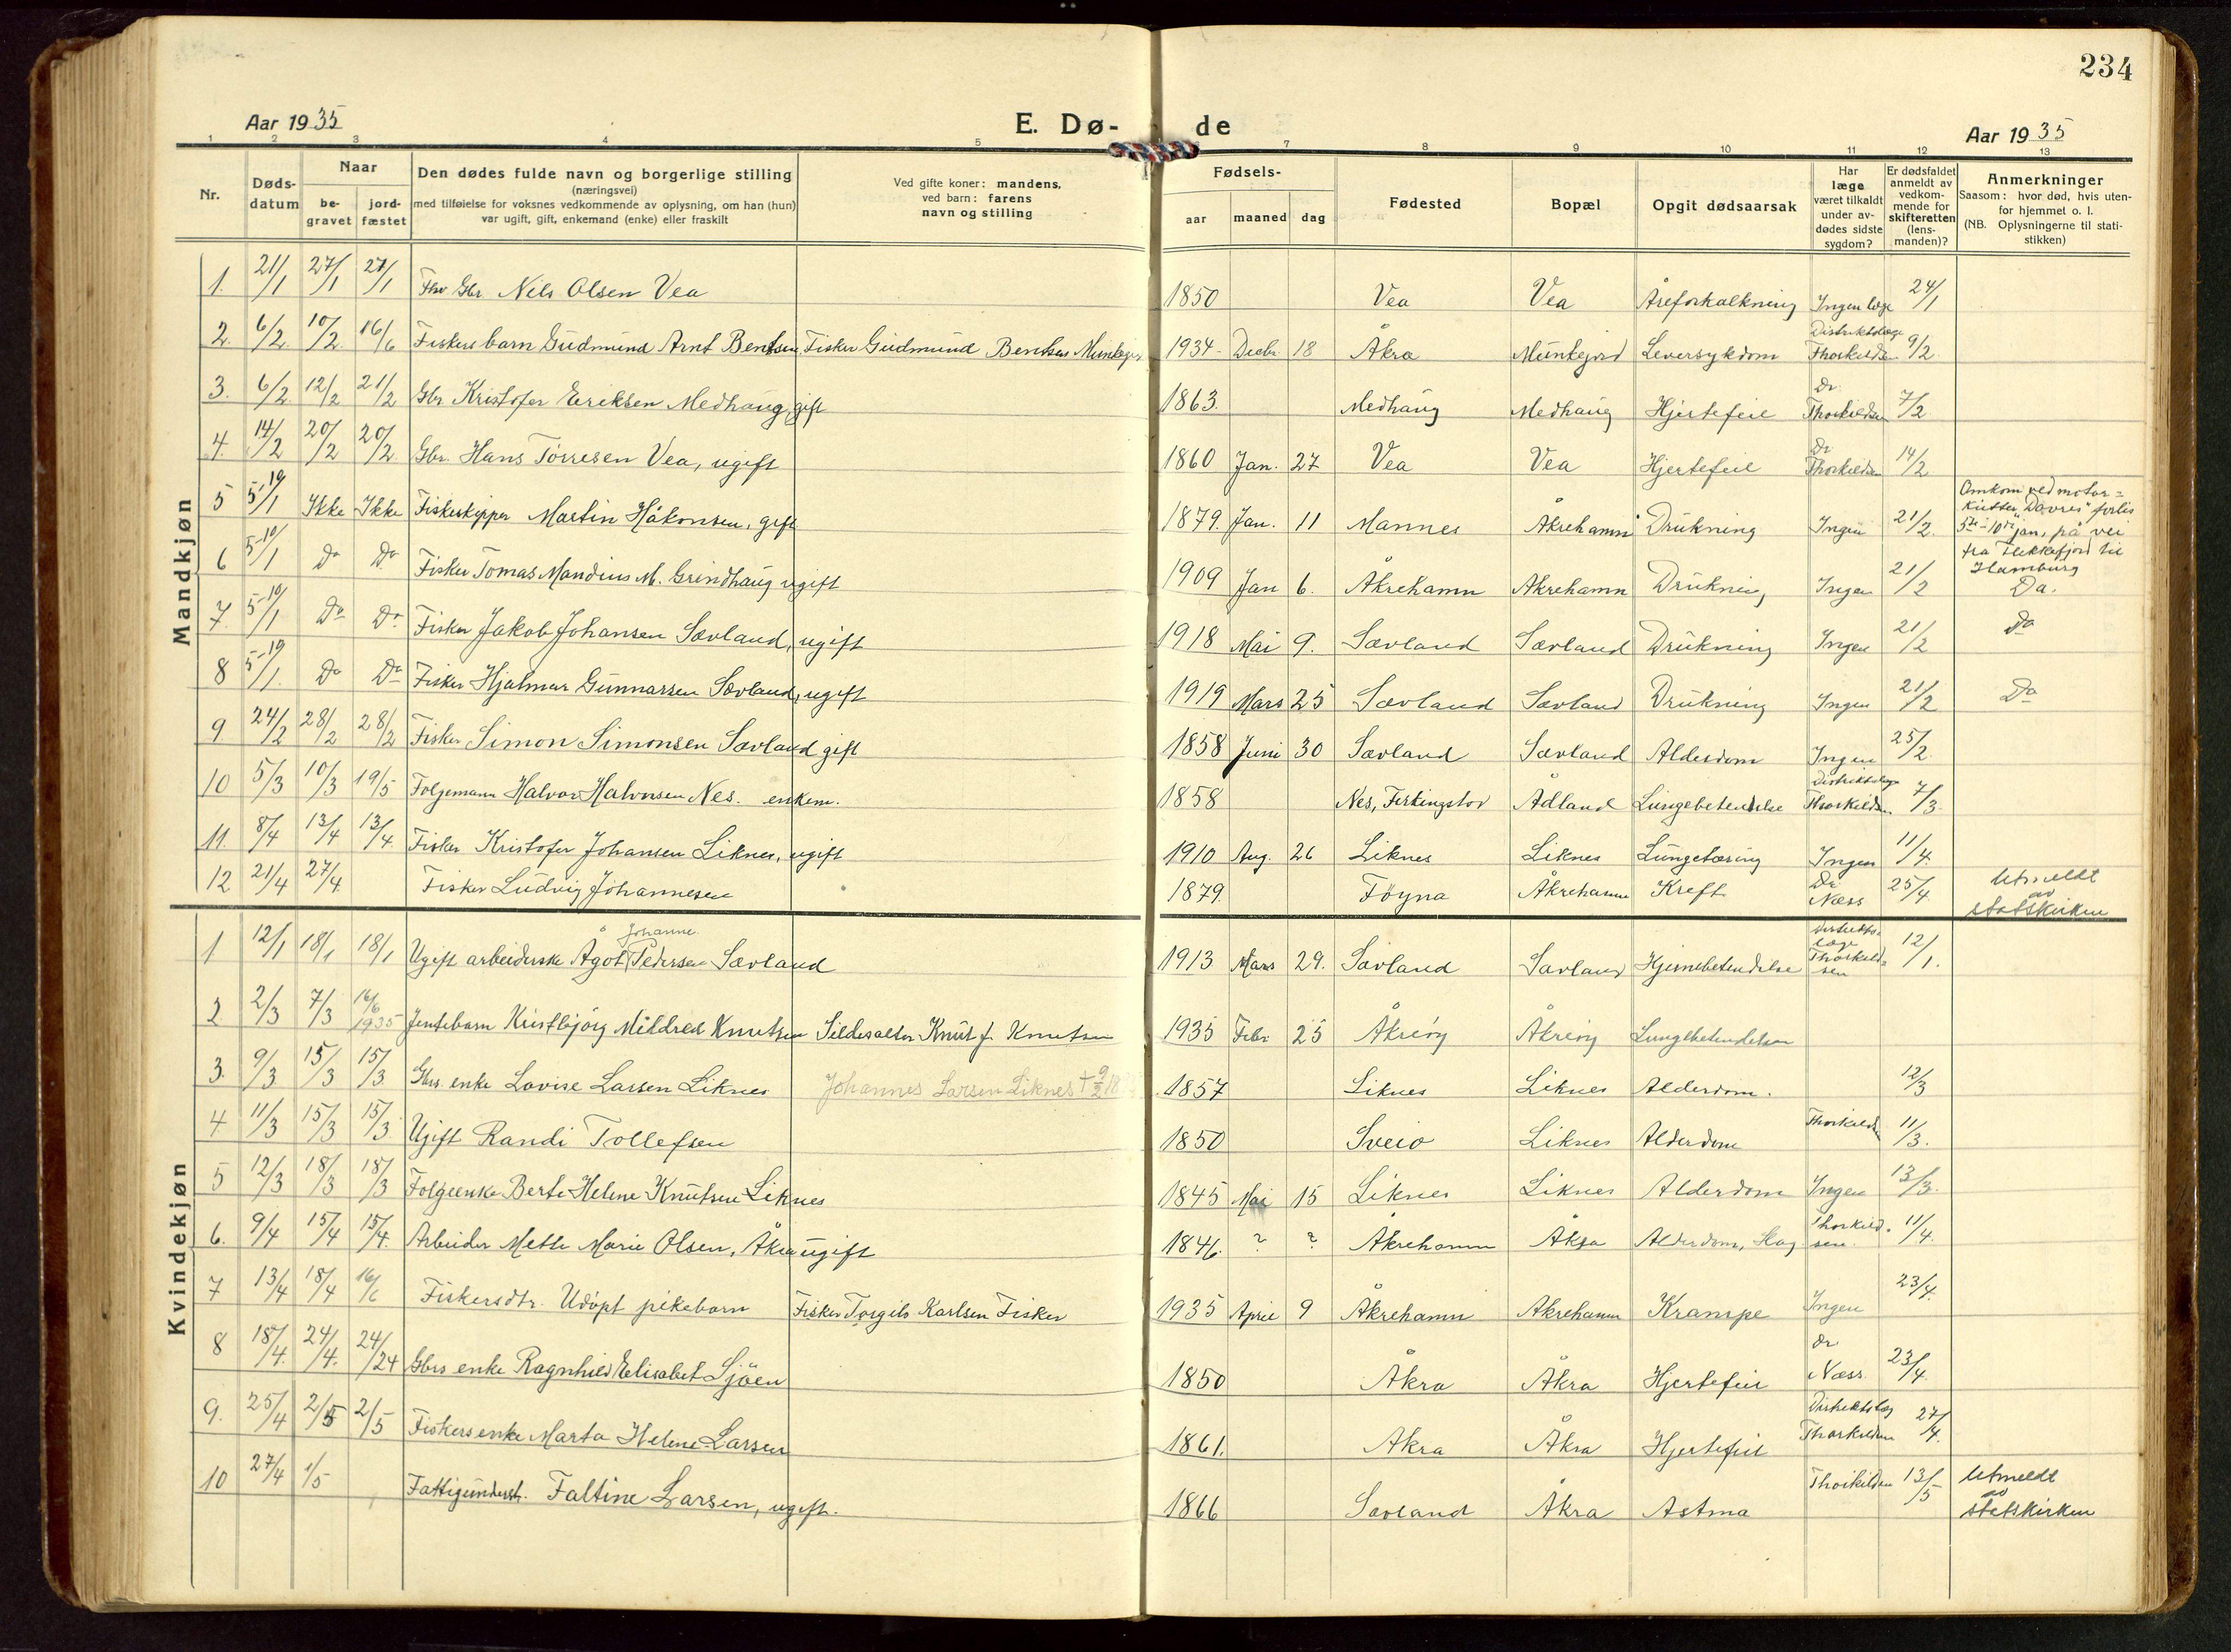 234
Aar 1935
E. Dø- de
Aar 1935
1 2 3 4 5 7 8 9 10 11 12 13
Nr.
Døds-
datum
Naar
be-
gravet
jord-
fæstet
Den dødes fulde navn og borgerlige stilling
(næringsvei)
med tilføielse for voksnes vedkommende av oplysning, om han (hun)
var ugift, gift, enkemand (enke) eller fraskilt
Ved gifte koner: mandens,
ved barn: farens
navn og stilling
Fødsels-
aar maaned dag
Fødested
Bopæl
Opgit dødsaarsak
Har
læge
været tilkaldt
under av-
dødes sidste
sygdom?
Er dødsfaldet
anmeldt av
vedkom-
mende for
skifteretten
(lens-
manden)?
Anmerkninger
Saasom: hvor død, hvis uten-
for hjemmet o. l.
(NB. Oplysningerne til stati-
stikken)
Mandkjøn
1. 21/1 27/1 27/1 Fhv. Gbr. Nels Olsen Vea 1850 Vea Vea Åreforkalkning Ingen læge 24/1
2. 6/2 10/2 16/6 Fiskers barn Gudmund Arnt Bentsen Fisker Gudmund Bentsen 1934 Decbr 18 Åkra Munkejord Leversykdom Distriktslæge Thorkildsen 9/2
3. 6/2 12/2 21/2 Gbr. Kristofer Eriksen Medhaug, gift 1863. Medhaug Medhaug Hjertefeil Dr. Thorkildsen 7/2
4. 14/2 20/2 20/2 Gbr. Hans Torresen Vea, ugift 1860 Jan. 27 Vea Vea Hjertefeil Dr Thorkildsen 14/2
5 5-10/1 Ikke Ikke Fiskeskipper Martin Håkonsen, gift 1879. Jan. 11 Mannes Åkrehamn Drukning Ingen 21/2 Omkom ved motor=
kutter "Davres" forlis
5te-10de jan, på vei
fra Flekkefjord til
Hamburg
6 5-10/1 Do Do Fisker Tomas Mandius M. Grindhaug ugift 1909 Jan 6. Åkrehamn Åkrehamn Drukning Ingen 21/2 Do.
7. 5-10/1 Do Do Fisker Jakob Johansen Sævland, ugift 1918 Mai 9. Sævland Sævland Drukning Ingen 21/2 Do
8 5-10/1. Do Do Fisker Hjalmar Gunnarsen Sævland, ugift 1919 Mars 25 Sævland Sævland Drukning Ingen 21/2 Do
9 24/2 28/2 28/2 Fisker Simon Simonsen Sævland gift 1858 Juni 30 Sævland Sævland Alderdom Ingen 25/2.
10 5/3 10/3 19/5 Folgemann Halvor Halvorsen Nes. enkem. 1858 Nes, Ferkingstad Ådland Lungebetendelse Distriktslæge Thorkildsen. 7/3.
11. 8/4 13/4 13/4. Fisker Kristofer Johansen Liknes, ugift 1910 Aug. 26 Liknes Liknes Lungetæring Ingen 11/4.
12 21/4 27/4 Fisker Ludvig Johannesen 1879. Föyna Åkrehamn Kreft Dr Næss 25/4. Utmeldt
av
statskirken
Kvindekjøn
1 12/1 18/1 18/1 Ugift arbeiderske Ågot Johanne Pedersen Sævland 1913 Mars 29. Sævland Sævland Hjernebetendelse Distrikts-læge Thorkild=sen 12/1.
2 2/3 7/3 16/6 1935 Jentebarn Kristbjörg Mildred Knutsen Sildesalter Knut J. Knutsen 1935 Febr 25 Åkreöy Åkreöy Lungebetendelse
3. 9/3 15/3 15/3 Gbrs. enke Lovise Larsen Liknes Johannes Larsen Liknes 1857 Liknes Liknes Alderdom. 12/3
4 11/3 15/3 15/3. Ugift Randi Tollefsen 1850 Sveio Liknes Alderdom Thorkildsen 11/3.
5 12/3 18/3 18/3 Folgeenke Berte Helene Knutsen Liknes 1845 Mai 15 Liknes Liknes Alderdom Ingen 13/3.
6. 9/4 15/4 15/4. Arbeider Mette Marie Olsen, Åkra ugift 1846. ? ? Åkrehamn Åkra Alderdom, Slag Thorkild-sen. 11/4.
7 13/4 18/4 16/6 Fiskersdtr. Udöpt pikebarn Fisker Torgils Karlsen Fisker 1935 April 9 Åkrehamn Åkrehamn Krampe Ingen 23/4.
8 18/4. 24/4. 24/24 Gbrs enke Ragnhild Elisabet Sjöen 1850 Åkra Åkra Hjertefeil Dr Næss 23/4.
9. 25/4 2/5 2/5 Fiskersenke Marta Helene Larsen 1861. Åkra Åkra Hjertefeil Distriktslæg Thorkildsen 27/4.
10 27/4 1/5 Fattigunderst. Faltine Larsen, ugift. 1866 Sævland Åkra Astma Thorkildsen 13/5 Utmeldt
av
statskirken